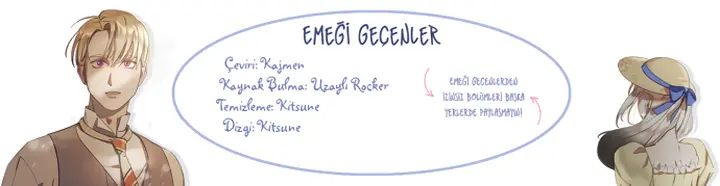 EMEĞİ GEÇENLER
Çeviri: Kajmen
Kaynak Bulma: Uzaylı Rocker
Temizleme: Kitsune
Dizgi: Kitsune
EMEĞİ GEÇENLERDEN
İZİNSİZ BÖLÜMLERİ BAŞKA
YERLERDE PAYLAŞMAYIN!